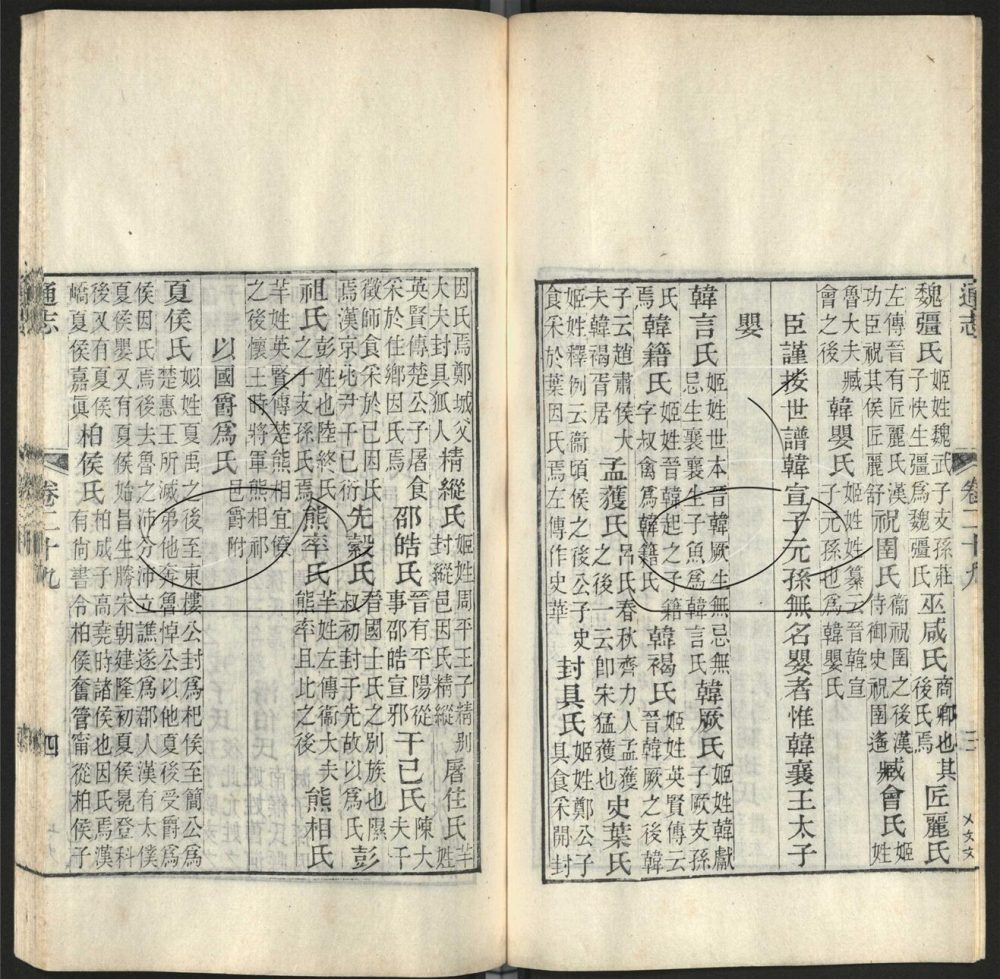 通志 卷二十九 三
魏彊氏姬姓魏武子支孫莊子快生彊爲魏彊氏巫咸氏商卿也其後氏焉匠麗氏
左傳晉有匠麗氏漢功臣祝其侯匠麗舒祝圉氏衞祝圉之後漢侍御史祝圉遙臧會氏姬姓
魯大夫臧會之後韓嬰氏姬姓姓纂云晉韓宣子元孫也爲韓嬰氏
臣謹按世譜韓宣子元孫無名嬰者惟韓襄王太子
嬰
韓言氏姬姓世本晉韓厥生無忌無忌生襄襄生子魚爲韓言氏韓厥氏姬姓韓獻子厥支孫
氏焉韓籍氏姬姓晉韓起之子籍字叔禽爲韓籍氏韓褐氏姬姓英賢傳云晉韓厥之後韓
子云趙肅侯大夫韓褐胥居孟獲氏呂氏春秋齊力人孟獲之後一云卽宋猛獲也史葉氏
姬姓釋例云衞頃侯之後公子史食采於葉因氏焉左傳作史華封具氏姬姓鄭公子具食采開封
因氏焉鄭城父大夫封具狐人精縱氏姬姓周平王子精別封縱邑因氏精縱屠住氏芈姓
英賢傳楚公子屠食采於住鄉因氏焉邵皓氏晉有平陽從事邵皓宣邪干已氏陳大夫干
徵師食采於已因氏焉漢京兆尹干已衍先縠氏晉國士氏之別族也隰叔初封于先故以爲氏彭
祖氏彭姓也陸終氏之子支孫氏焉熊率氏芈姓左傳衞大夫熊率且此之後熊相氏
芈姓英賢傳楚熊相宜僚之後懷王時將軍熊相祁
以國爵爲氏邑爵附
夏侯氏姒姓夏禹之後至東樓公封爲杞侯至簡公爲楚惠王所滅弟他奔魯悼公以他夏後受爵爲
侯因氏焉後去魯之沛分沛立譙遂爲郡人漢有太僕夏侯嬰又有夏侯始昌生騰宋朝建隆初夏侯冕登科
後又有夏侯嶠夏侯嘉眞柏侯氏柏成子高堯時諸侯也因氏焉漢有尙書令柏侯奮管甯從柏侯子
通志 卷二十九 四